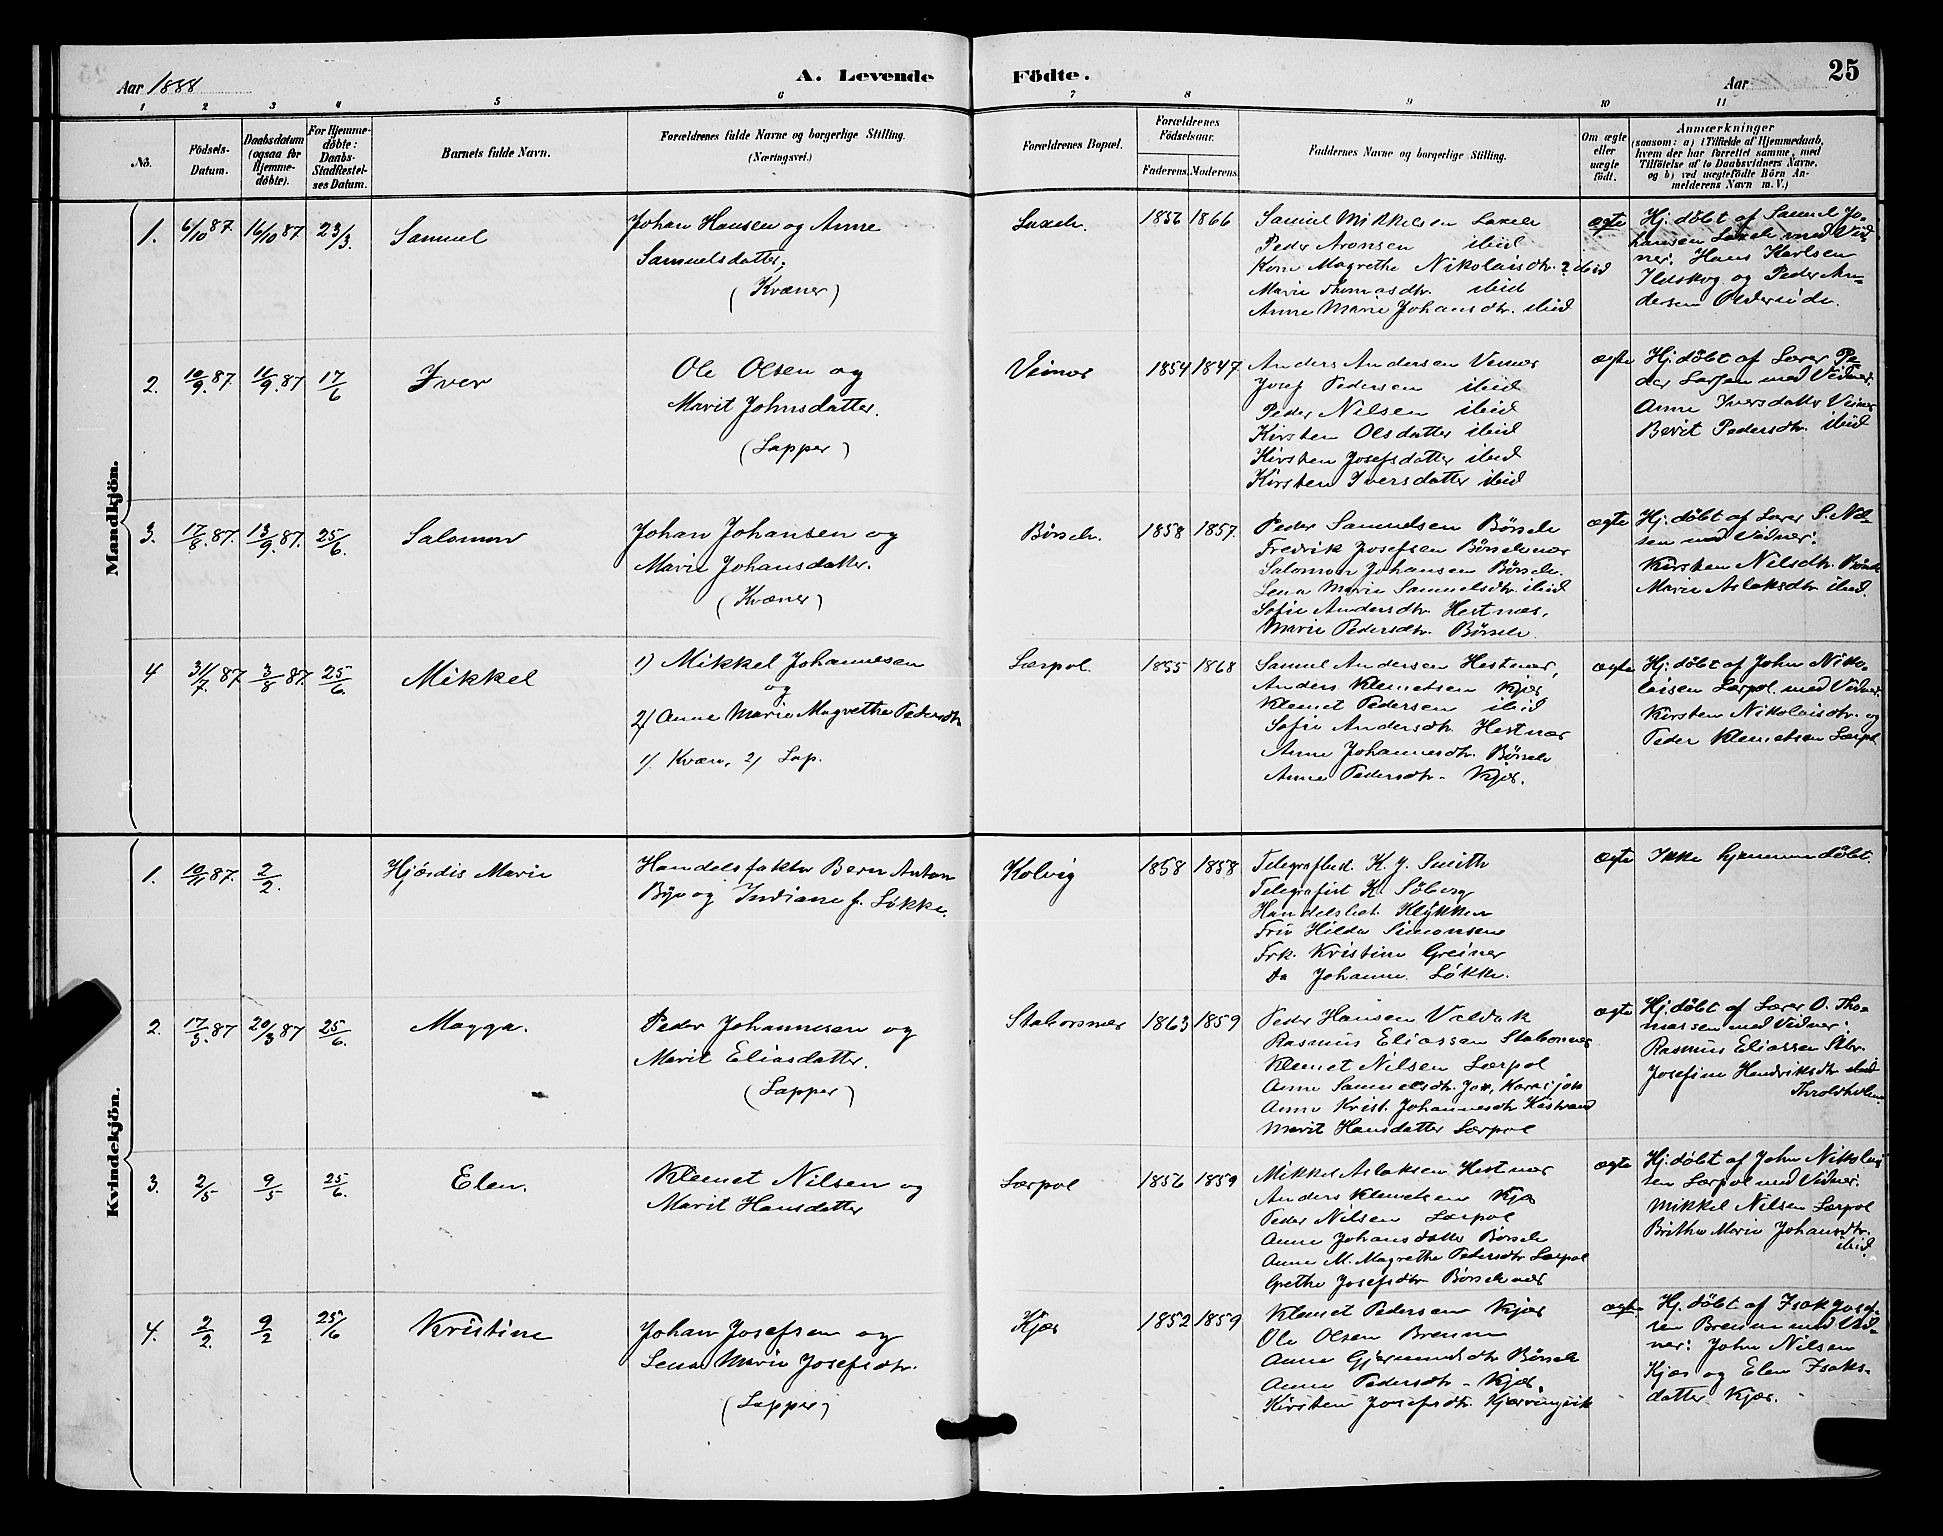 Aar 1888
A. Levende
Födte.
Aar
25
1 2 3 4 5 6 7 8 9 10 11
No.
Födsels-
Datum.
Daabsdatum
(ogsaa for
Hjemme-
döbte).
For Hjemme-
döbte:
Daabs-
Stadfestel-
ses Datum.
Barnets fulde Navn.
Forældrenes fulde Navne og borgerlige Stilling.
(Næringsvei.)
Forældrenes Bopæl.
Forældrenes
Födselsaar.
Faderens.
Moderens.
Faddernes Navne og borgerlige Stilling.
Om ægte
eller
uægte
födt.
Anmærkninger
(saasom: a) i Tilfælde af Hjemmedaab,
hvem der har forrettet samme, med
Tilföielse af to Daabsvidners Navne,
og b) ved uægtefödte Börn An-
melderens Navn m. V.)
Mandkjön.
1. 6/10 87. 16/10 87 23/3. Samuel
Johan Hansen og Anne
Samuelsdatter.
(Kvæner)
Laxelv. 1856 1866
Samuel Mikkelsen Laxelv
Peder Aronsen ibid
Karn Magrethe Nikolaisdtr. ? ibid
Marie Thomasdtr. ibid
Anne Marie Johansdtr. ibid
ægte
Hj. døbt af Samuel Jo-
hansen Laxelv med Vid-
ner: Hans Karlsen
Ildskog og Peder An-
dersen Oldereide.
2. 10/9 87. 11/9 87 17/6 Iver
Ole Olsen og
Marit Johnsdatter.
(Lapper)
Veinæs 1854 1847.
Anders Andersen Veinæs
Josef Pedersen ibid
Peder Nilsen ibid
Kirsten Olsdatter ibid
Kirsten Josefsdatter ibid
Kirsten Iversdatter ibid
ægte
Hj. døbt af Lærer Pe-
der Larsen med Vidner:
Anne Iversdatter Veinæs
Berit Pedersdtr. ibid
3. 17/8. 87. 13/9. 87. 25/6. Salomon
Johan Johansen og
Marie Johansdatter.
(Kvæner)
Børselv. 1858 1857.
Peder Samuelsen Børselv
Fredrik Josefsen Børselvnæs
Salomon Johansen Børselv.
Lena Marie Samuelsdtr. ibid
Sofie Andersdtr. Hestnæs,
Marie Pedersdtr. Børselv
ægte
Hj. døbt af Lærer S. Nil-
sen med Vidner:
Kirsten Nilsdtr. Børselv
Marie Aslaksdtr. ibid.
4 31/7. 87 3/8 87. 25/6. Mikkel
1) Mikkel Johannesen
og
2) Anne Marie Magrethe Pedersdtr
1). Kvæn, 2) Lap.
Lærpol. 1855 1868
Samuel Andersen Hestnæs,
Anders Klemetsen Kjæs
Klemet Pedersen ibid
Sofie Andersdtr. Hestnæs
Anne Johannesdtr. Børselv
Anne Pedersdtr. Kjæs.
ægte
Hj. døbt af John Niko-
laisen Lærpol med Vidner:
Kirsten Nikolaisdtr. og
Peder Klemetsen Lærpol
Kvindekjön.
1. 10/11 87. 2/2. Hjørdis Marie
Handelsfaktor Bern Anton
Bye og Indiane f. Løkke.
Kolvig 1858 1858
Telegrafbed. K. J. Smith
Telegrafist K. Söberg
Handelsbet. Klykken
Fru Hilda Simonsen
Frk. Kristine Greiner
Do Johanne Løkke.
ægte Ikke hjemmedøbt.
2. 17/3. 87 20/3 87 25/6. Magga.
Peder Johannesen og
Marit Eliasdatter.
(Lapper)
Staborsnæs 1863 1859
Peder Hansen Valdak
Rasmus Eliassen Staborsnæs
Klemet Nilsen Lærpol
Anne Samuelsdtr. Karasjok
Anne Krist. Johannesdtr. Kistrand
Marit Hansdatter Lærpol
ægte
Hj. døbt af Lærer O. Tho-
massen med Vidner:
Rasmus Eliassen Stbr.
Josefine Hendriksdtr. ibid
Throldholmen
3. 2/5 9/5 25/6. Elen.
Klemet Nilsen og
Marit Hansdatter
Lærpol 1856 1859
Mikkel Aslaksen Hestnæs
Anders Klemetsen Kjæs
Peder Nilsen Lærpol
Anne Johansdatter Børselv
Anne M. Magrethe Pedersdtr Lærpol
Grethe Josefsdtr. Børselvnæs
ægte
Hj. døbt af John Nikolai-
sen Lærpol med Vidner:
Mikkel Nilsen Lærpol
Brithe Marie Johansdtr.
ibid
4. 2/2. 9/2 25/6 Kristine
Johan Josefsen og
Lena Marie Josefsdtr.
(Lapper)
Kjæs 1852 1859
Klemet Pedersen Kjæs
Ole Olsen Brenna
Anne Gjermundsdtr Børselv
Anne Pedersdtr. Kjæs,
Kirsten Josefsdtr. Kjæsringvik
ægte
Hj. døbt af Isak Josef-
sen Brenna med Vid-
ner: John Nilsen
Kjæs og Elen Isaks-
datter Kjæs.